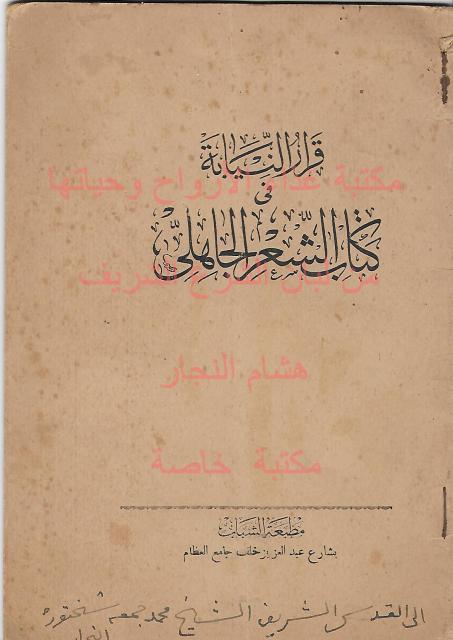 قرار النيابة
مكتبة غذاء الارواح وحياتها
في
كتاب الشعر الجاهلي
من لبان الشرع الشريف
هشام النجار
مكتبة خاصة
مطبعة الشباب
بشارع عبد العزيز خلف جامع العظام
الى القدس الشريف الشيخ محمد جمعه
النجار